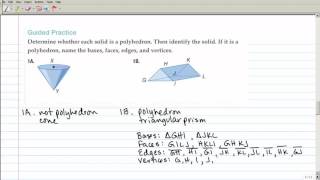 Guided Practice
Determine whether each solid is a polyhedron. Then identify the solid. If it is a
polyhedron, name the bases, faces, edges, and vertices.
1A.
X
Y
1B.
H
K
G
J
L
1A. not polyhedron
cone
1B. polyhedron
triangular prism
Bases: △GHI, △JKL
Faces: GILJ, HKLI, GHKJ
Edges: GH, HI, GI, JK, KL, JL, IL, HK, GJ
Vertices: G, H, I, J,